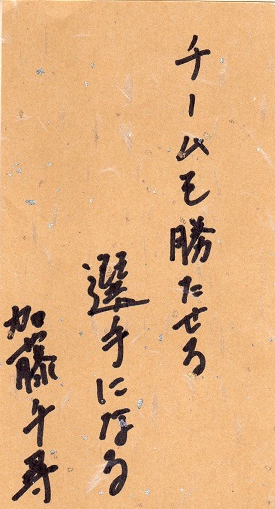 チームを勝たせる
選手になる
加藤千尋